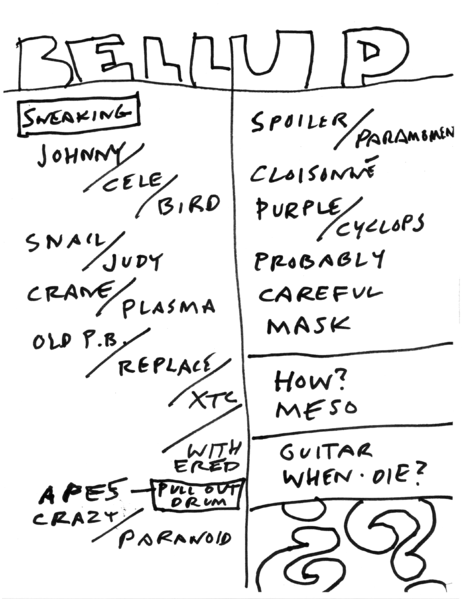 BELLUP
SNEAKING
JOHNNY/
CELE/
BIRD
SNAIL/
JUDY
CRANE/
PLASMA
OLD P.B./
REPLACE/
XTC/
WITH
ERED
APES — PULL OUT
DRUM
CRAZY/
PARANOID
SPOILER/
PARAMOMEN
CLOISONNÉ
PURPLE/
CYCLOPS
PROBABLY
CAREFUL
MASK
HOW?
MESO
GUITAR
WHEN · DIE?